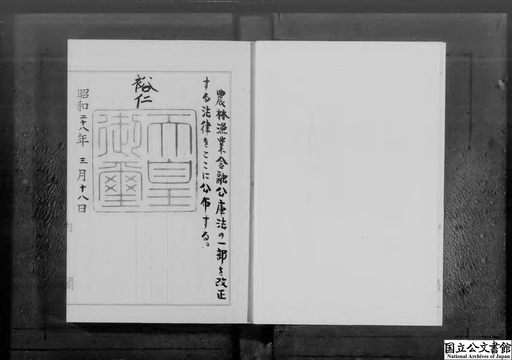 農林漁業金融公庫法の一部を改正
する法律をここに公布する。
裕仁
天皇
御璽
昭和二十八年三月十八日
内閣
国立公文書館
National Archives of Japan